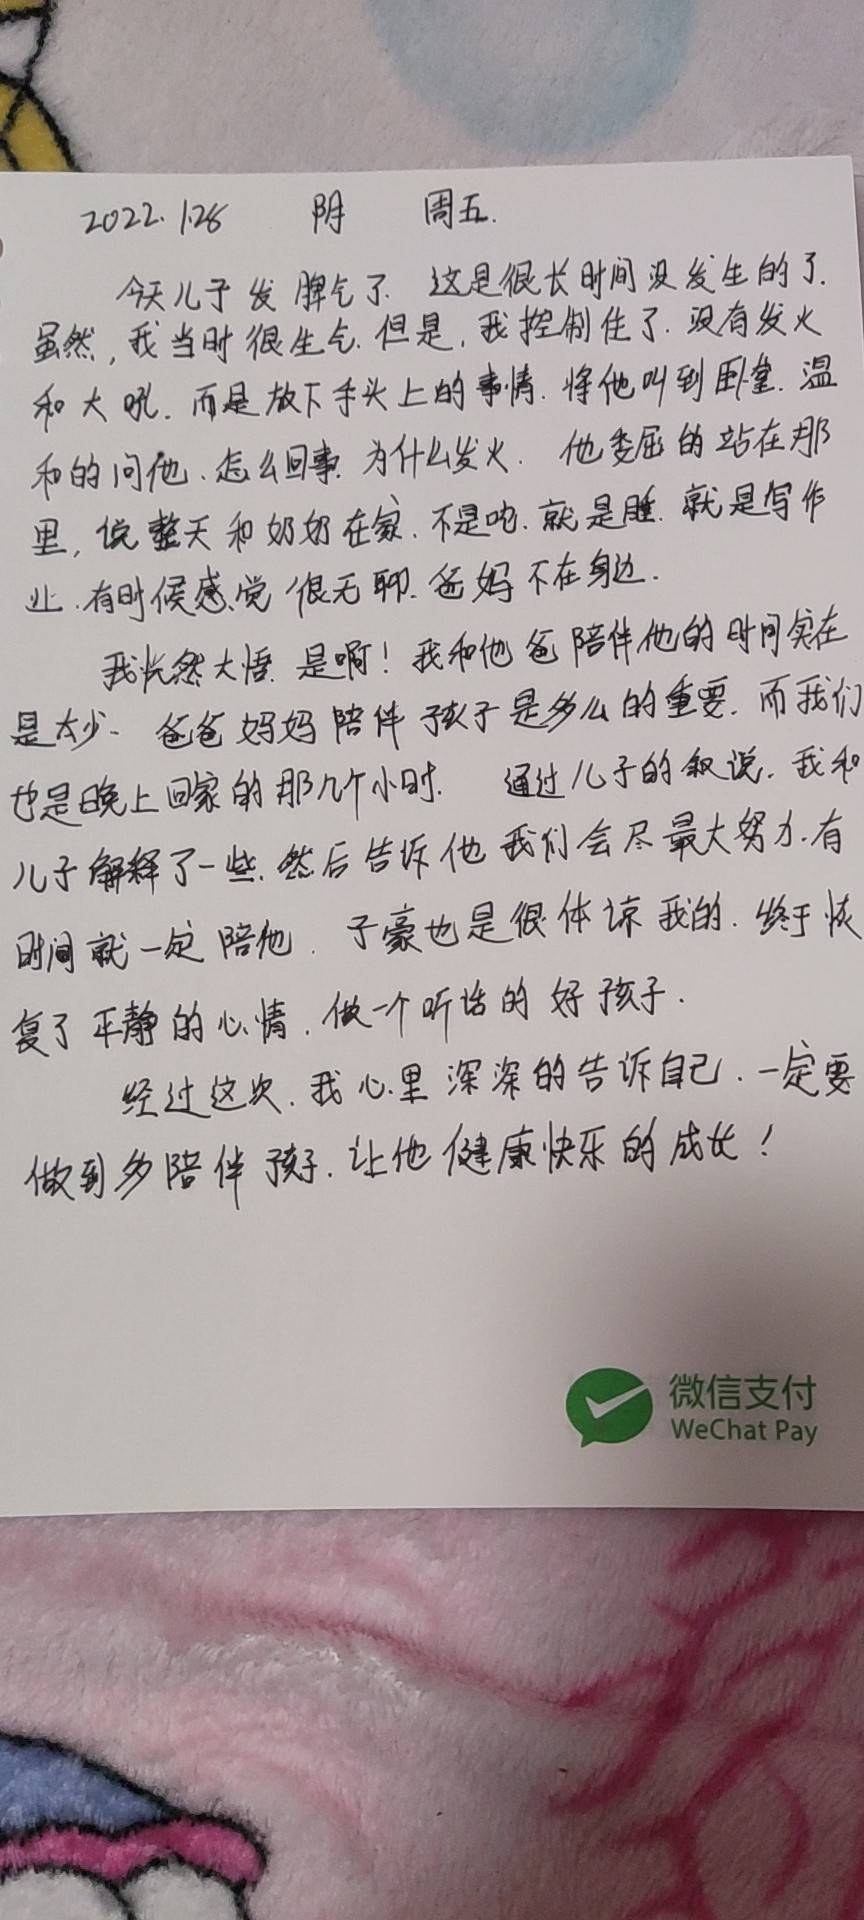 2022.1.28 阴 周五.
今天儿子发脾气了.这是很长时间没发生的了.
虽然,我当时很生气.但是,我控制住了.没有发火
和大吼.而是放下手头上的事情.将他叫到卧室.温
和的问他、怎么回事.为什么发火. 他委屈的站在那
里,说整天和奶奶在家.不是吃.就是睡.就是写作
业.有时候感觉很无聊.爸妈不在身边.
我恍然大悟.是啊!我和他爸陪伴他的时间实在
是太少. 爸爸妈妈陪伴孩子是多么的重要.而我们
也是晚上回家的那几个小时. 通过儿子的叙说.我和
儿子解释了一些.然后告诉他我们会尽最大努力.有
时间就一定陪他. 子豪也是很体谅我的.终于恢
复了平静的心情.做一个听话的好孩子.
经过这次.我心里深深的告诉自己.一定要
做到多陪伴孩子.让他健康快乐的成长!
微信支付
WeChat Pay